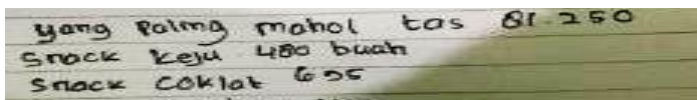 yang paling mahal tas 81.250
snack keju 480 buah
snack coklat